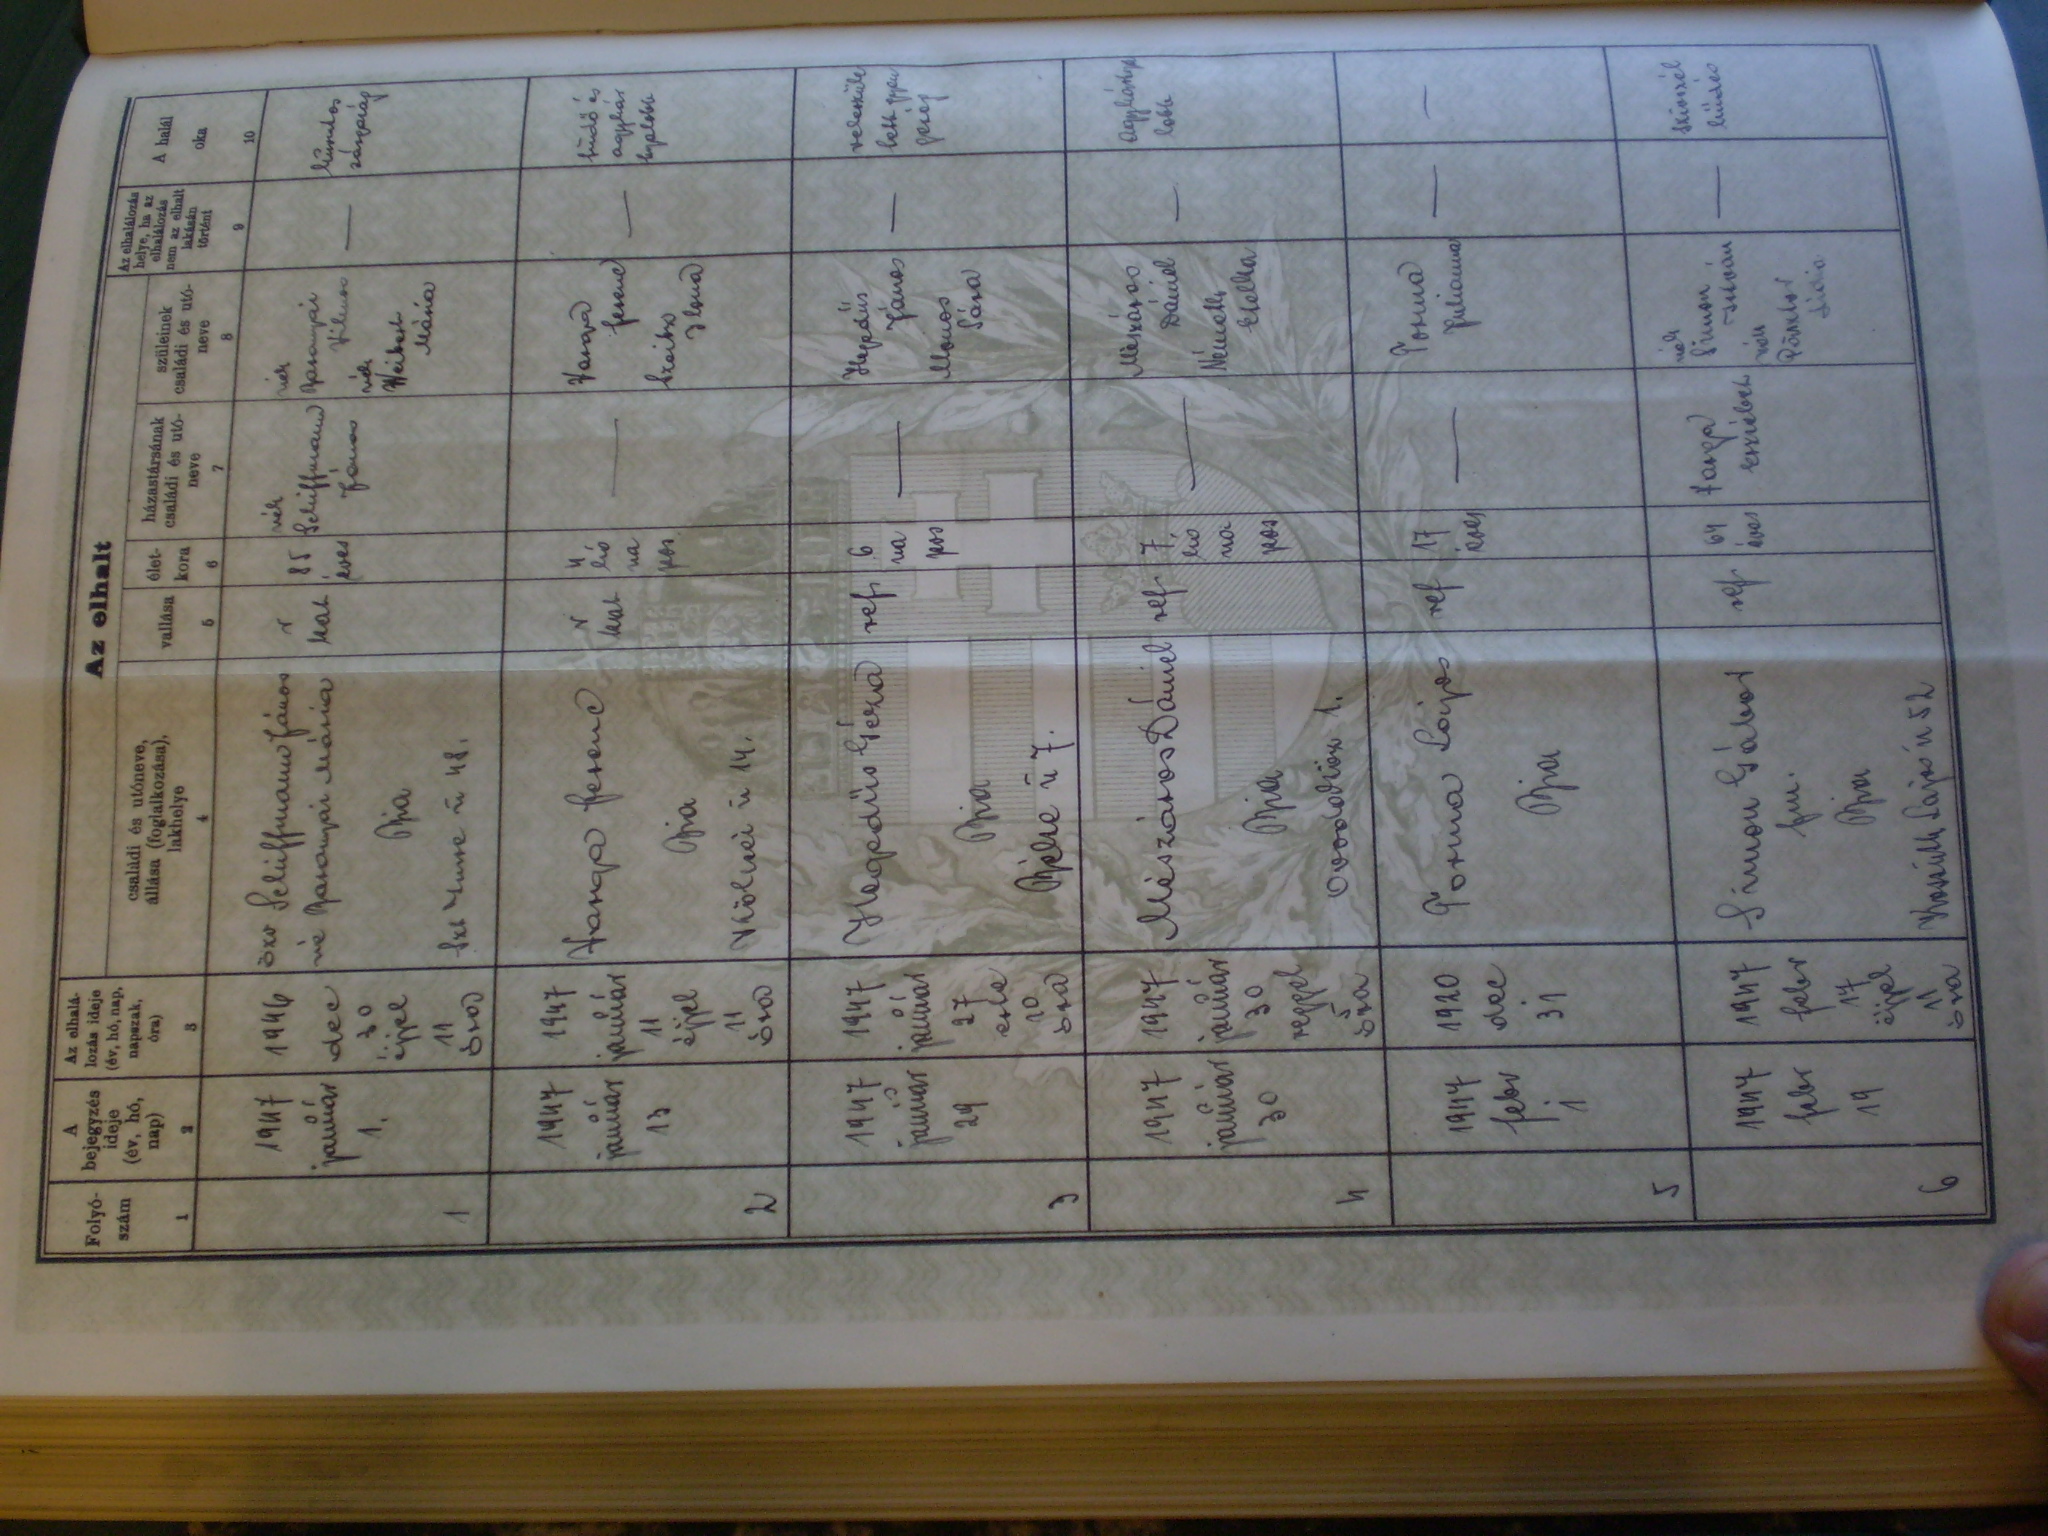 Az elhalt
Folyó-
szám
A
bejegyzés
ideje
(év, hó,
nap)
Az elhalá-
lozás ideje
(év, hó, nap,
napszak,
óra)
családi és utóneve,
állása (foglalkozása),
lakhelye
vallása
élet-
kora
házastársának
családi és utó-
neve
szüleinek
családi és utó-
neve
Az elhalálozás
helye, ha az
elhalálozás
nem az elhalt
lakásán
történt
A halál
oka
1
2
3
4
5
6
7
8
9
10
1
1947
január
1.
1946
dec
30
éjjel
11
óra
özv Schiffmann János
né Baranyai Mária
Bia
Szt Imre u 48.
r
kat
85
éves
néh
Schiffmann
János
néh
Baranyai
Vilmos
néh
Mária
—
2
1947
január
13
1947
január
11
éjjel
11
óra
Varga Ferenc
Bia
Kölcsei u 14.
r
kat
4
hó
na
pos
—
Varga
Ferenc
Szeitko
Ilona
—
tüdő és
agyhár
3
1947
január
29
1947
január
27
este
10
óra
Hegedüs Géza
Bia
Béke u 7.
ref
6
na
pos
—
Hegedüs
János
Monos
Sára
—
4
1947
január
30
1947
január
30
reggel
5
óra
Mészáros Dániel
Bia
ref
7
hó
na
pos
—
Mészáros
Dániel
Németh
Etelka
—
agyhártya
lobb
5
1947
febr
1
1920
dec
31
Torma Lajos
Bia
ref
17
éves
—
Torma
Julianna
—
—
6
1947
febr
19
1947
febr
17
éjjel
11
óra
Simon Gábor
fm.
Bia
Kossuth Lajos u 52
ref
64
éves
Varga
Erzsébet
néh
Simon
István
néh
—
szívszél
hüdés